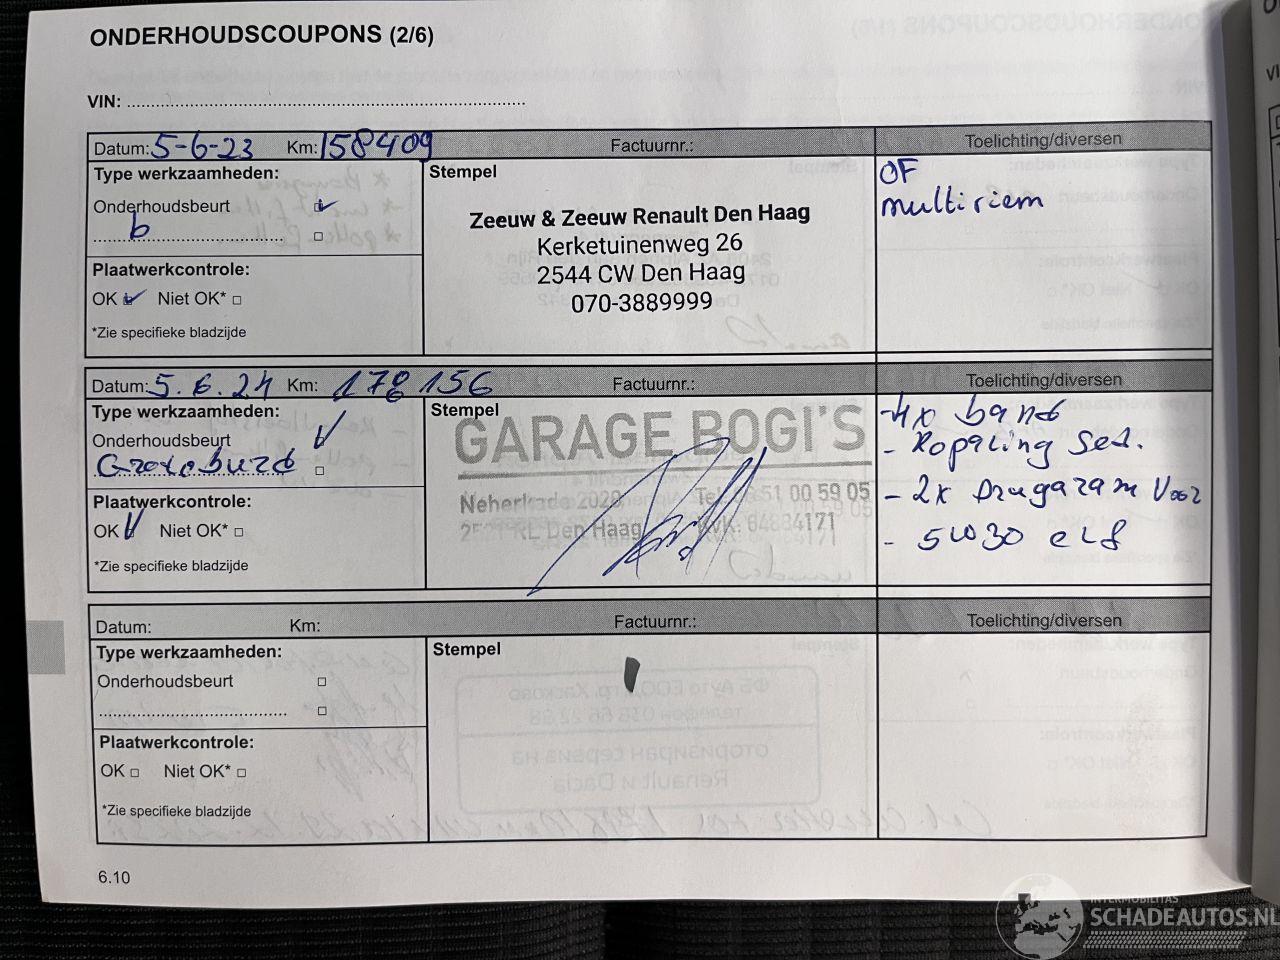 ONDERHOUDSCOUPONS (2/6)
VIN:
Datum: 5-6-23 Km: 158409 Factuurnr.: Toelichting/diversen
Type werkzaamheden:
Onderhoudsbeurt
b
Plaatwerkcontrole:
OK Niet OK*
*Zie specifieke bladzijde
Stempel
Zeeuw & Zeeuw Renault Den Haag
Kerketuinenweg 26
2544 CW Den Haag
070-3889999
OF
multiriem
Datum: 5.6.24 Km: 178156 Factuurnr.: Toelichting/diversen
Type werkzaamheden:
Onderhoudsbeurt
Plaatwerkcontrole:
OK Niet OK*
*Zie specifieke bladzijde
Stempel
GARAGE BOGI'S
2020, Tel: 51 00 59 05
Den Haag KvK:
-4x band
- Kopaling Set.
- 2x Voor
- 5W30 elf
Datum: Km: Factuurnr.: Toelichting/diversen
Type werkzaamheden:
Onderhoudsbeurt
Plaatwerkcontrole:
OK Niet OK*
*Zie specifieke bladzijde
Stempel
6.10
INTERMOBILITAS
SCHADEAUTOS.NL